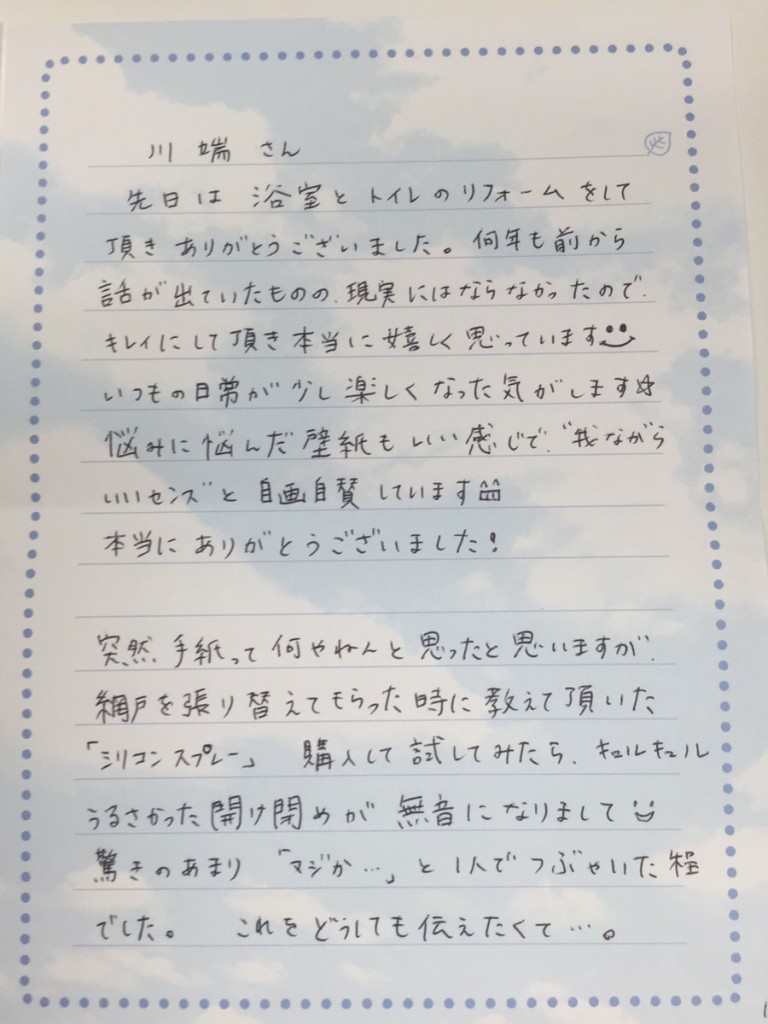 川端さん
先日は 浴室とトイレのリフォームをして
頂きありがとうございました。何年も前から
話が出ていたものの、現実にはならなかったので、
キレイにして頂き本当に嬉しく思っています
いつもの日常が少し楽しくなった気がします
悩みに悩んだ壁紙もいい感じで、“我ながら
いいセンス”と自画自賛しています
本当にありがとうございました!
突然、手紙って何やねんと思ったと思いますが、
網戸を張り替えてもらった時に教えて頂いた
「シリコンスプレー」 購入して試してみたら、キュルキュル
うるさかった開け閉めが無音になりまして
驚きのあまり「マジか…」と1人でつぶやいた程
でした。 これをどうしても伝えたくて…。